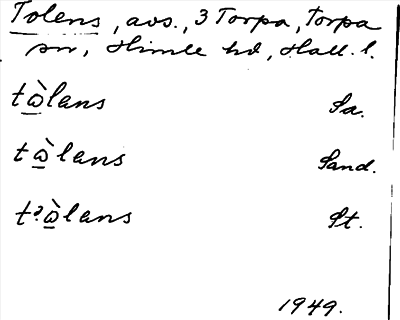 Tolens, avs., 3 Torpa, Torpa
sn, Himle hd, Hall. l.
tὼ̲lans Sa.
tὼ̲lans Sand.
tʔὼ̲lans St.
1949.